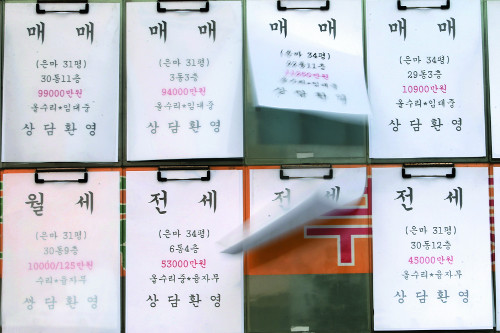 매 매
(은마 31평)
30동11층
99000만원
올수리*임대중
상담환영
매 매
(은마 31평)
3동3층
94000만원
올수리*임대중
상담환영
매 매
(은마 34평)
상담환영
매 매
(은마 34평)
29동3층
10900만원
올수리*임대중
상담환영
월 세
(은마 31평)
30동9층
10000/125만원
수리*융자무
상담환영
전 세
(은마 34평)
6동4층
53000만원
올수리중*융자무
상담환영
전 세
전 세
(은마 31평)
30동12층
43000만원
올수리*융자무
상담환영